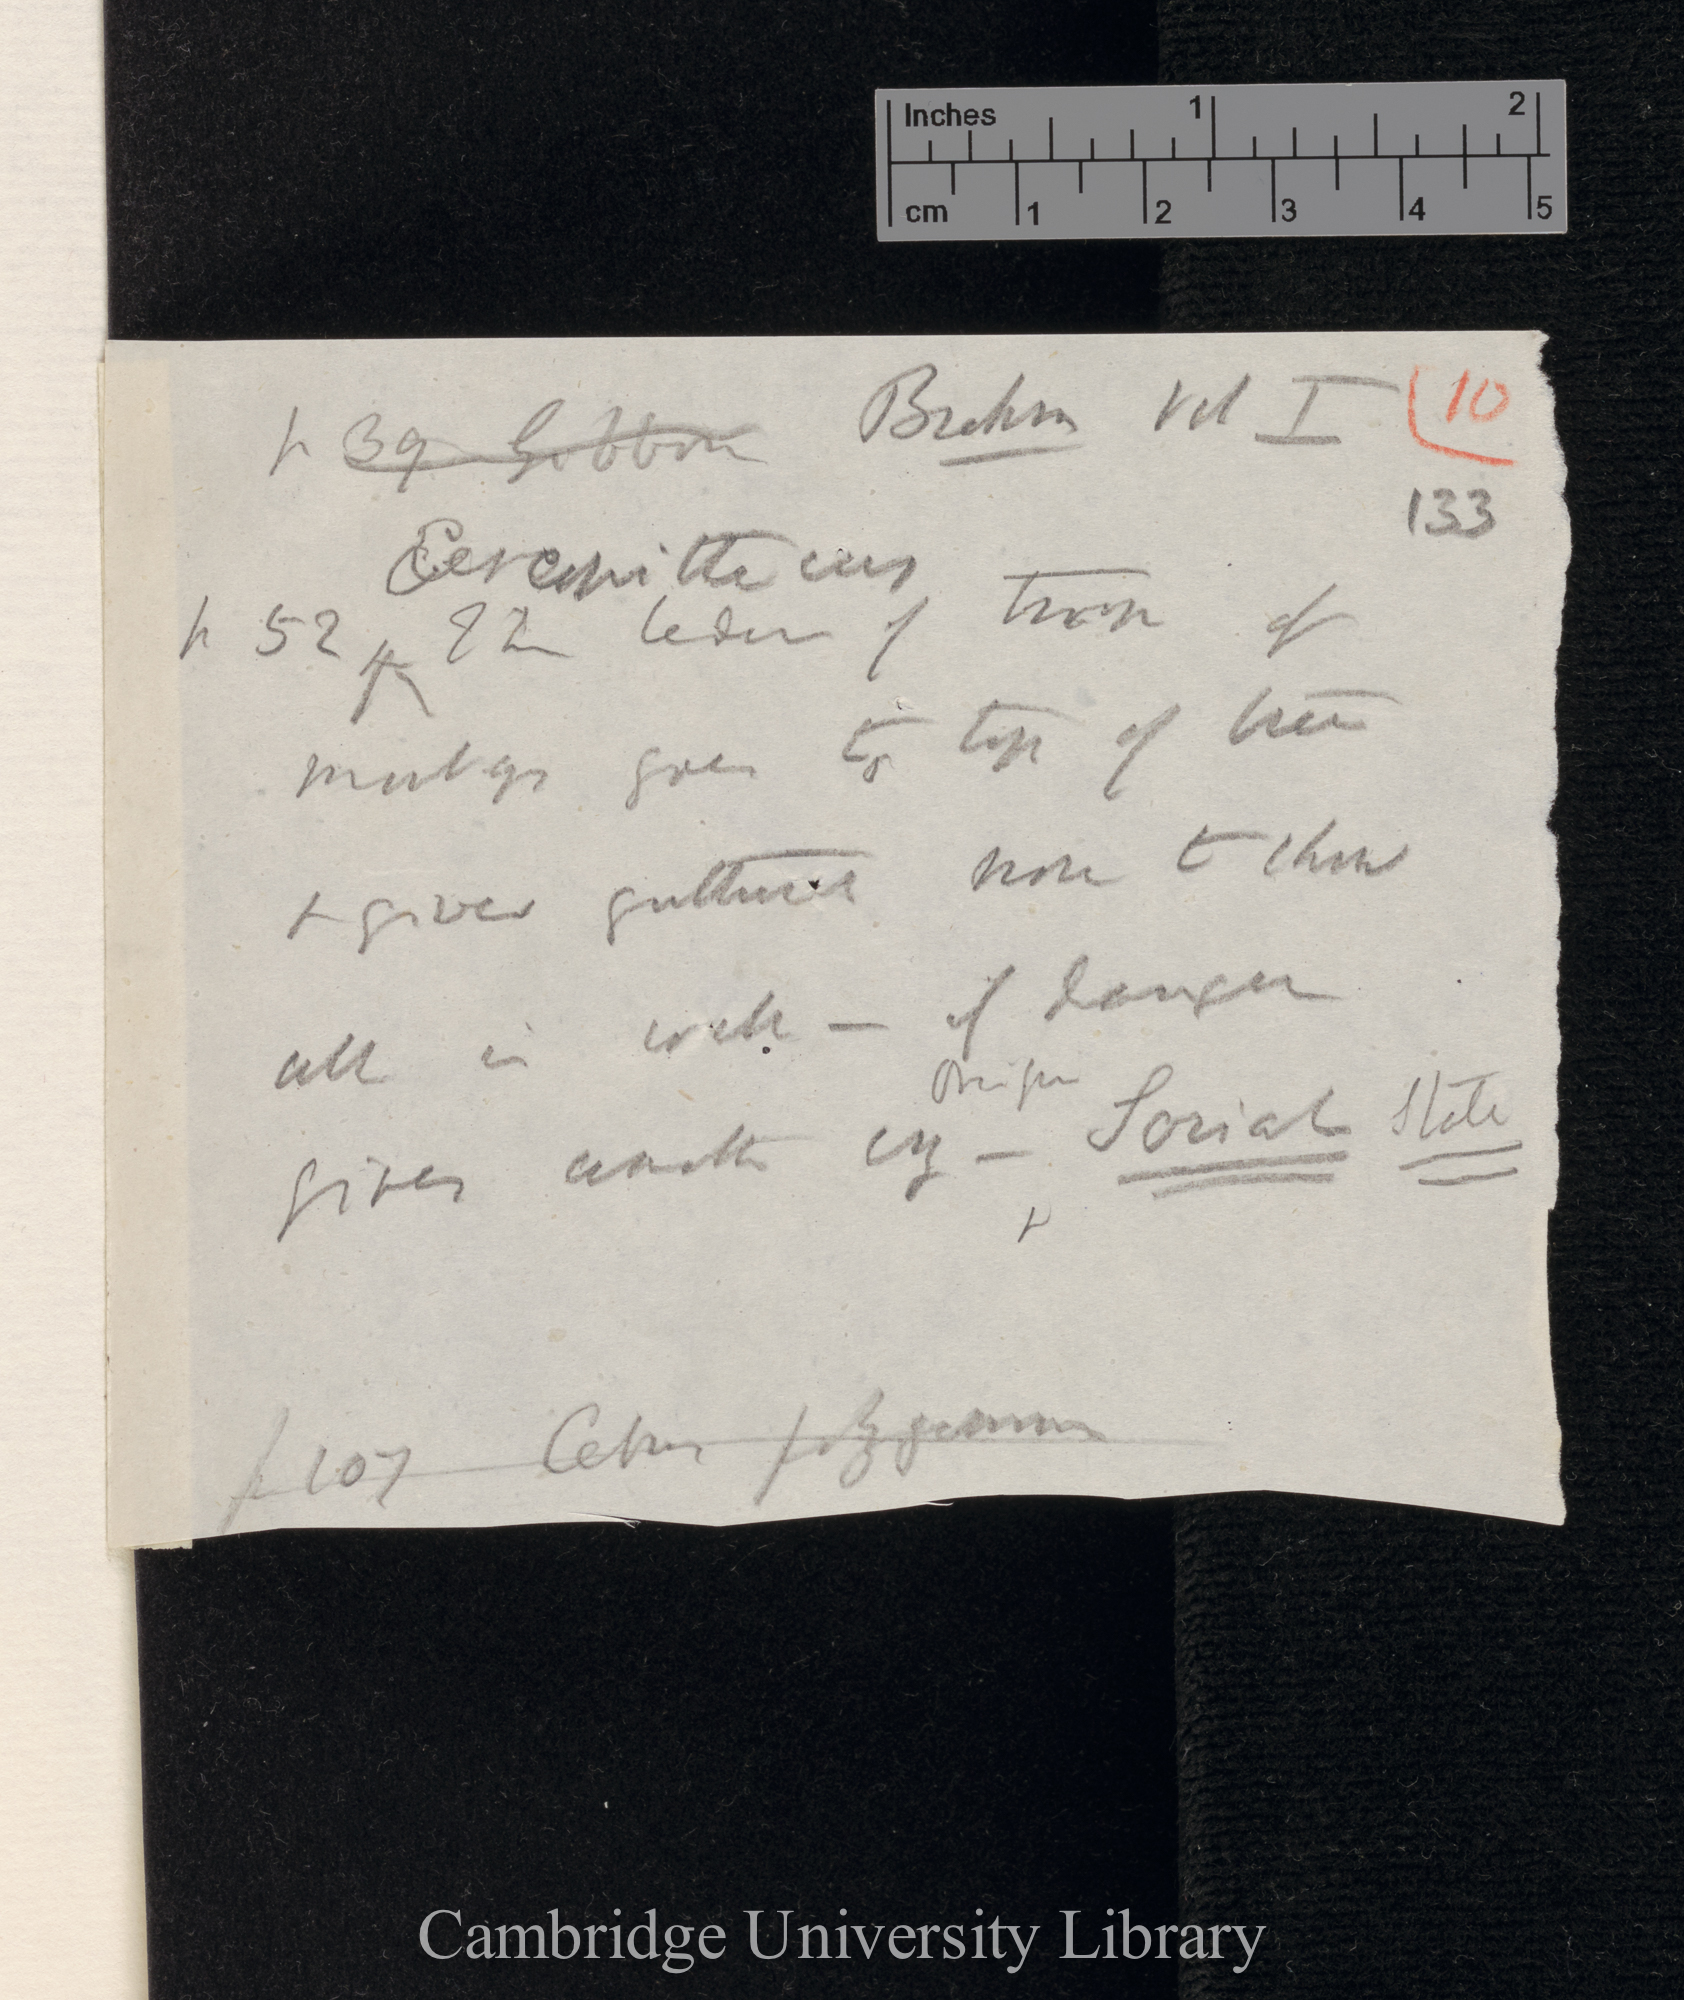 Inches 1 2
cm 1 2 3 4 5
p 39 Gibbon Brehm vol I 10
133
Cercopithecus
p 52 leader of troop of
monkeys goes to top of tree
& gives guttural noise to show
all is well — if danger
gives another cry — Origin Social State
p 107 Cebus polygamous
Cambridge University Library